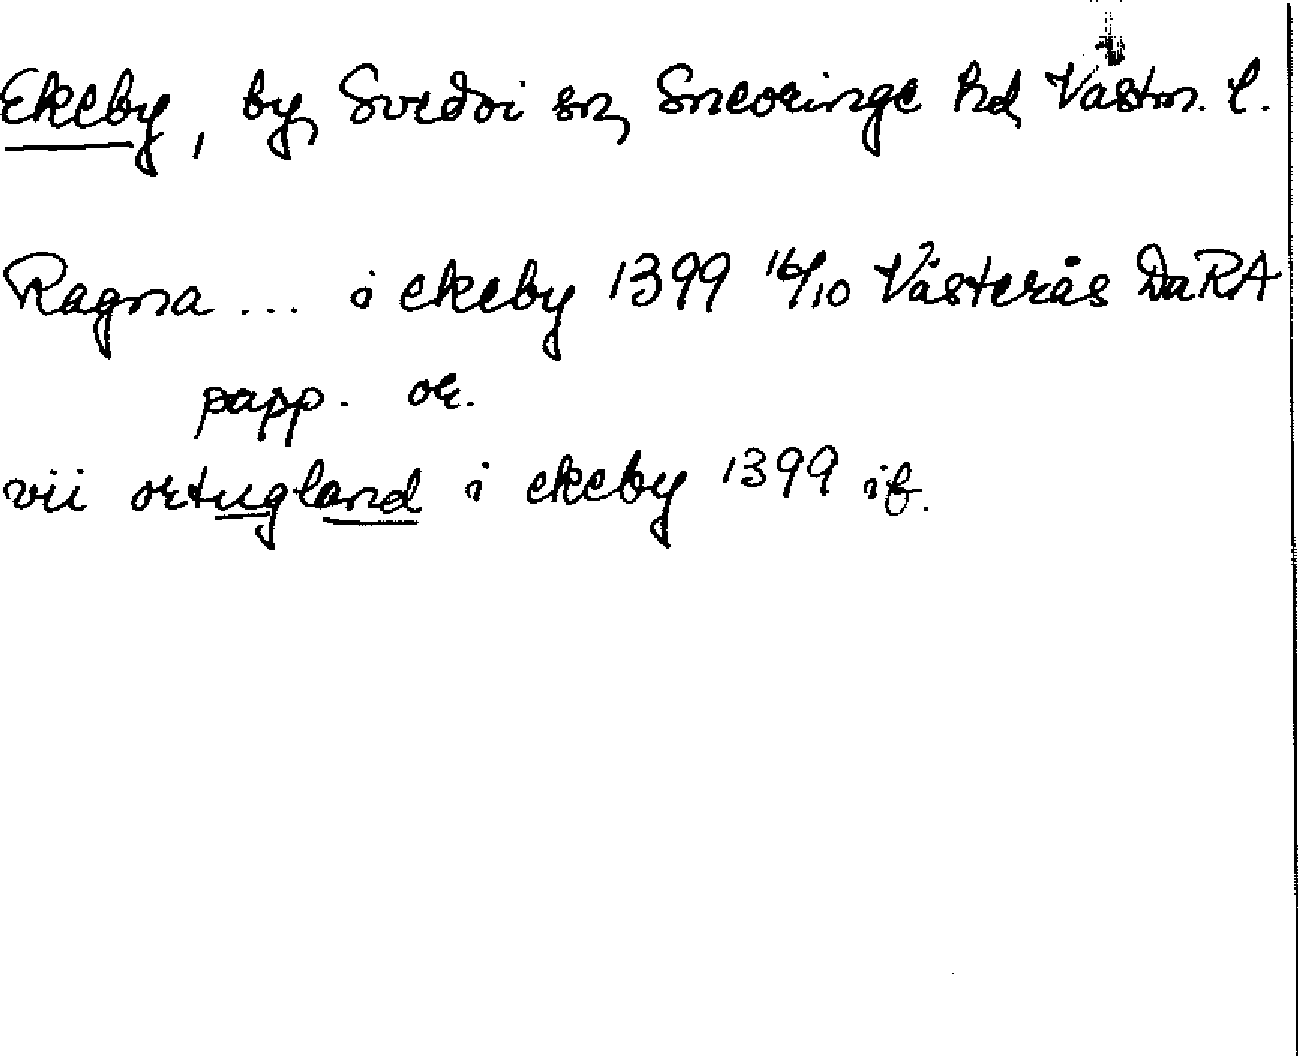 Ekeby, by, Svedvi sn, Snevringe hd, Västm. l.
Ragna ... i ekeby 1399 16/10 Västerås DaRA
papp. or.
vii örtugland i ekeby 1399 ib.